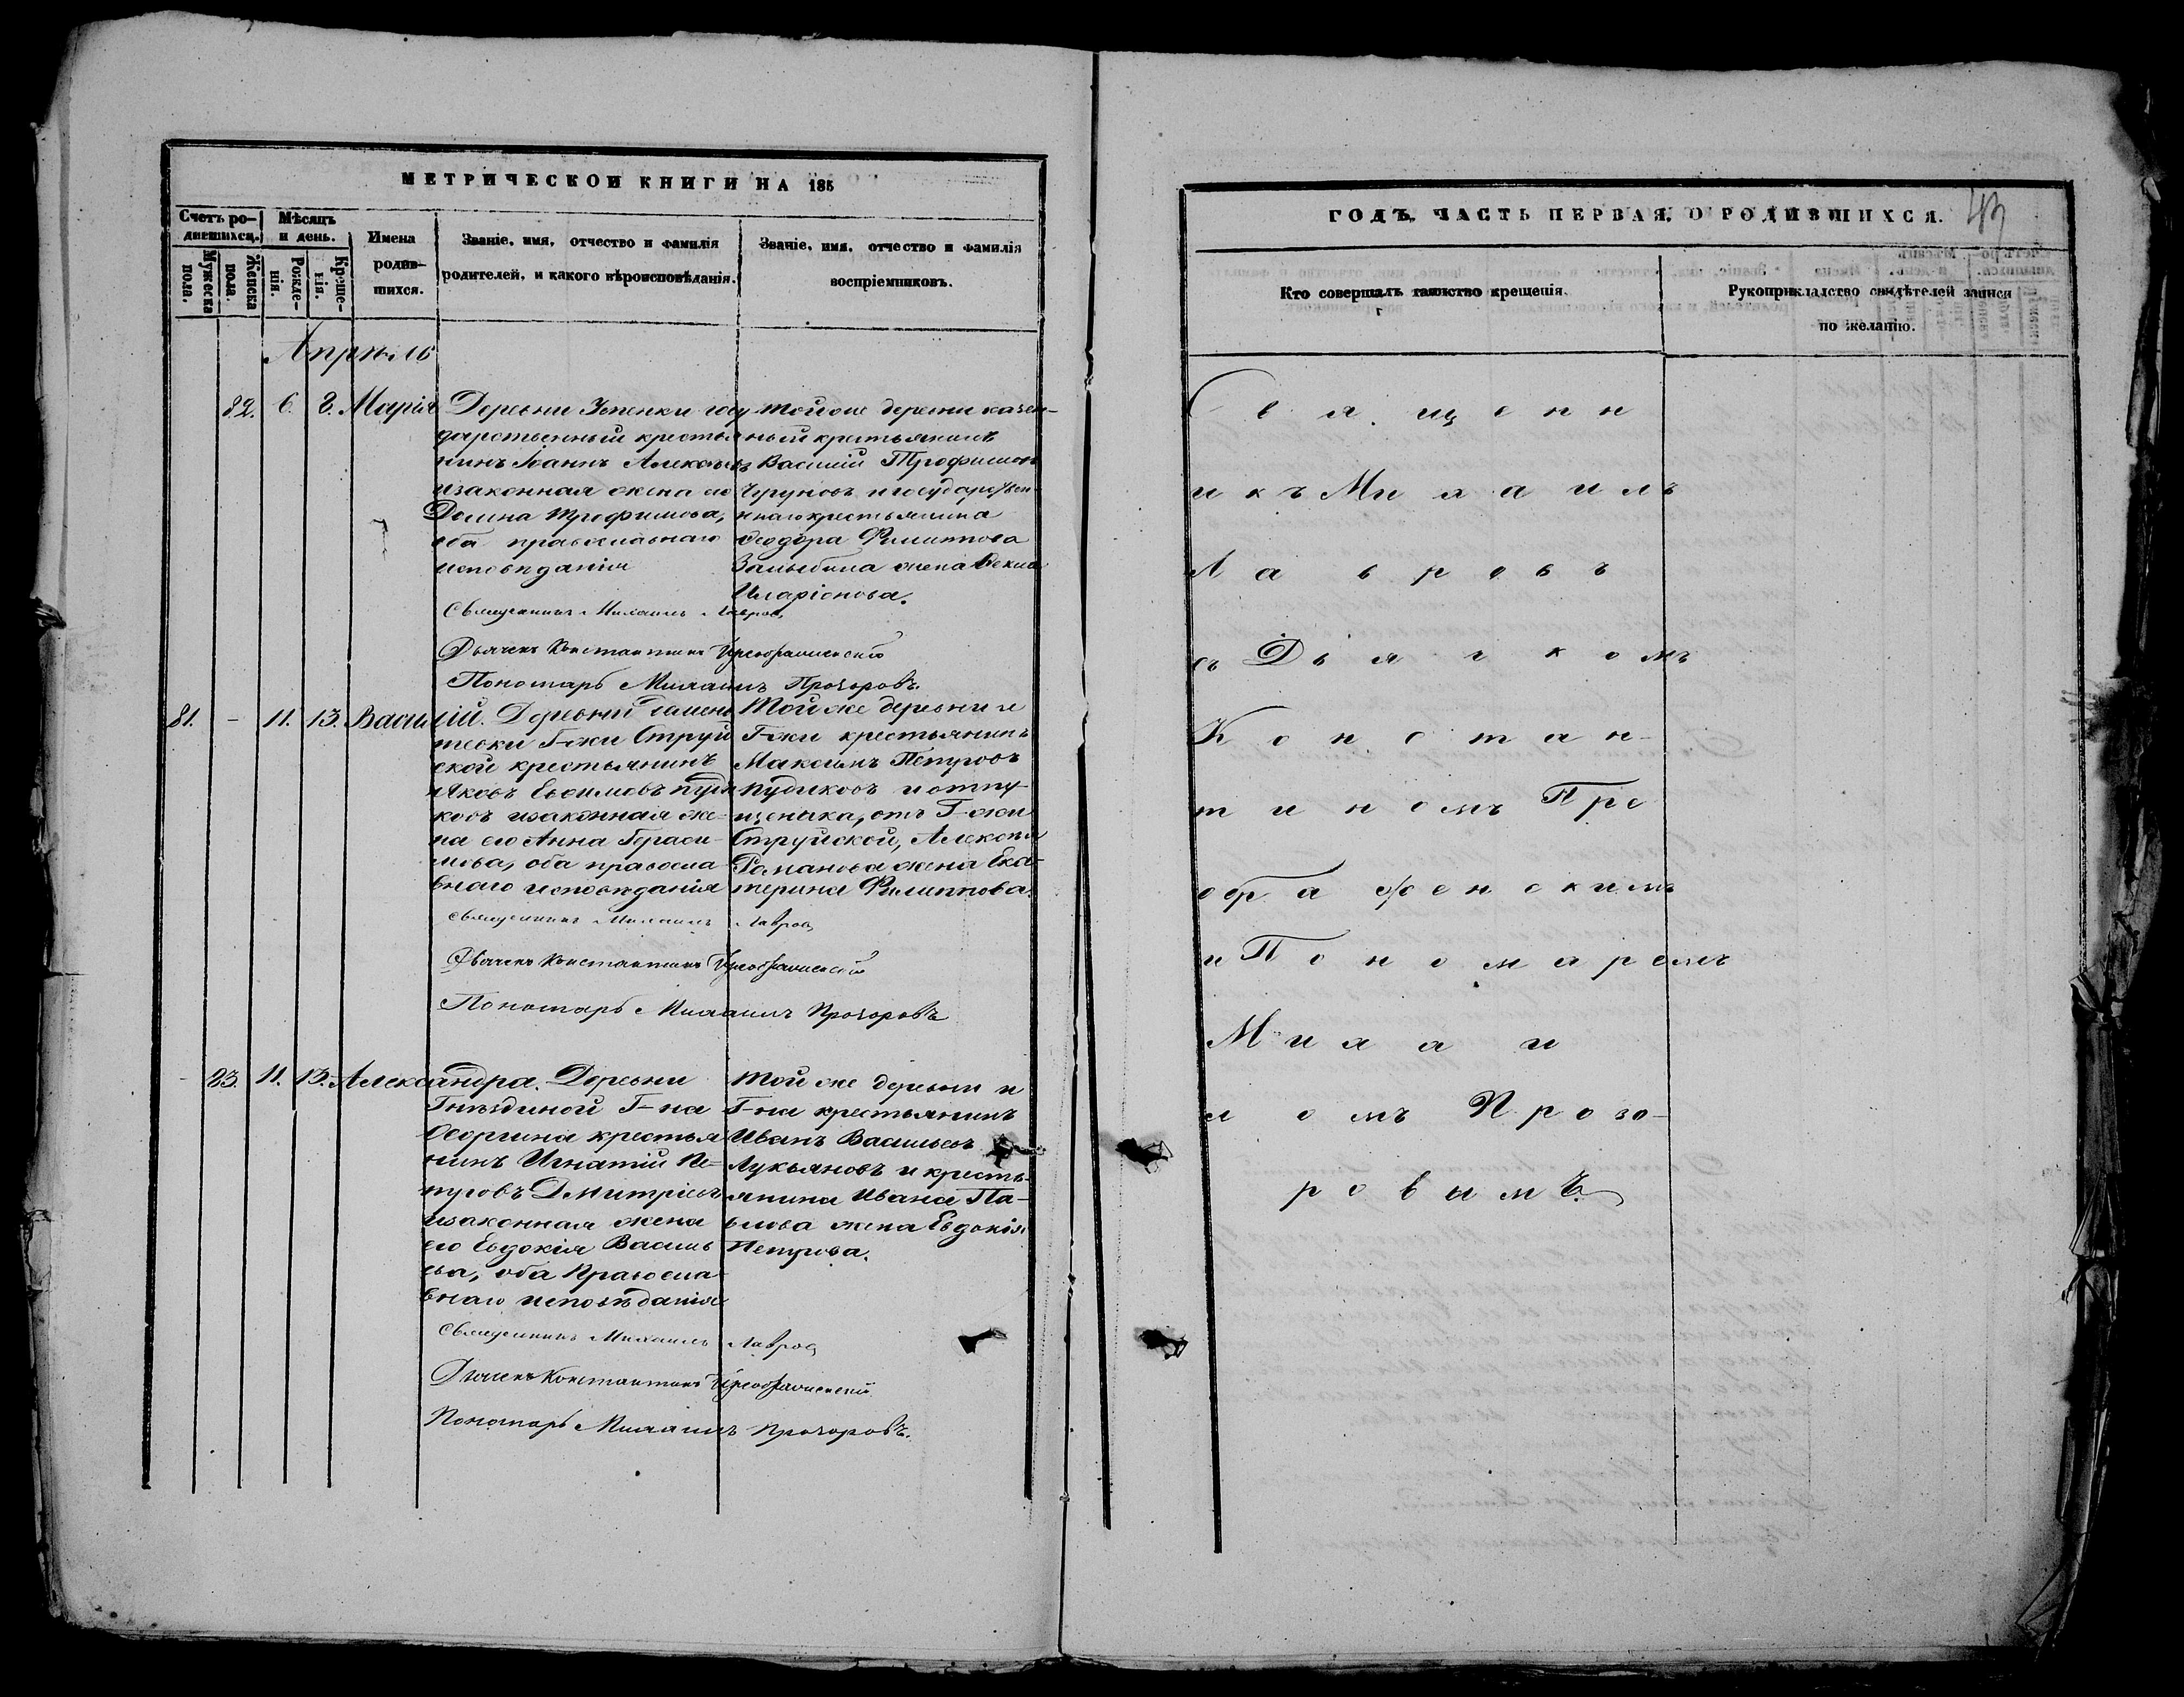 МЕТРИЧЕСКОЙ КНИГИ НА 185
Счетъ ро-
дившихся.
Мужеска
пола.
Женска
пола.
Мѣсяцъ
и день.
Рожде-
нія.
Креще-
нія.
Имена
родив-
шихся.
Званіе, имя, отчество и фамилія
родителей, и какого вѣроисповѣданія.
Званіе, имя, отчество и фамилія
воспріемниковъ.
Апрѣль
82. 6. 8. Марія
Деревни госу
дарственный крестья
нинъ Іоаннъ Алексѣевъ
изаконная жена его
Домна Трофимова,
оба православнаго
исповѣданія
Тойже деревни казен-
ный крестьянинъ
Василій Трофимовъ
и государствен-
ннаго крестьянина
Ѳеодора Филиппова
жена Ѳекла
Иларіонова.
Священникъ Михаилъ Лавровъ
Дьячекъ Константинъ Преображенскій
Пономарь Михаилъ Прозоровъ.
81. - 11. 13. Василій.
Деревни
Г-жи Струй
ской крестьянинъ
Яковъ Евѳимовъ Пуди
ковъ изаконная же-
на его Анна Гераси-
мова, оба правосла
внаго исповѣданія
Той же деревни и
Г-жи крестьянинъ
Максимъ Петровъ
Пудиковъ и отпу-
щеника, отъ Г-жи
Струйской, Алексѣя
Романова жена Ека-
терина Филиппова.
Священникъ Михаилъ Лавровъ
Дьячекъ Константинъ Преображенскій
Пономарь Михаилъ Прозоровъ
- 83. 11. 13. Александра.
Деревни
Гнѣздиной Г-на
Осоргина крестья
нинъ Игнатій Пе-
тровъ Дмитріевъ
изаконная жена
его Евдокія Василь
ева, оба Правосла-
внаго исповѣданія
Той же деревни и
Г-на крестьянинъ
Иванъ Васильевъ
Лукьяновъ и кресть-
янина Ивана Па-
влова жена Евдокія
Петрова.
Священникъ Михаилъ Лавровъ
Дьячекъ Константинъ Преображенскій
Пономарь Михаилъ Прозоровъ.
ГОДЪ, ЧАСТЬ ПЕРВАЯ, О РОДИВШИХСЯ.
43
Кто совершалъ таинство крещенія.
Рукоприкладство свидѣтелей записи
по желанію.
Священн
икъ Михаилъ
Лавровъ
съ Дьячкомъ
Констан-
тиномъ Пре
ображенскимъ
и Пономаремъ
Михаи
ломъ Прозо-
ровымъ.